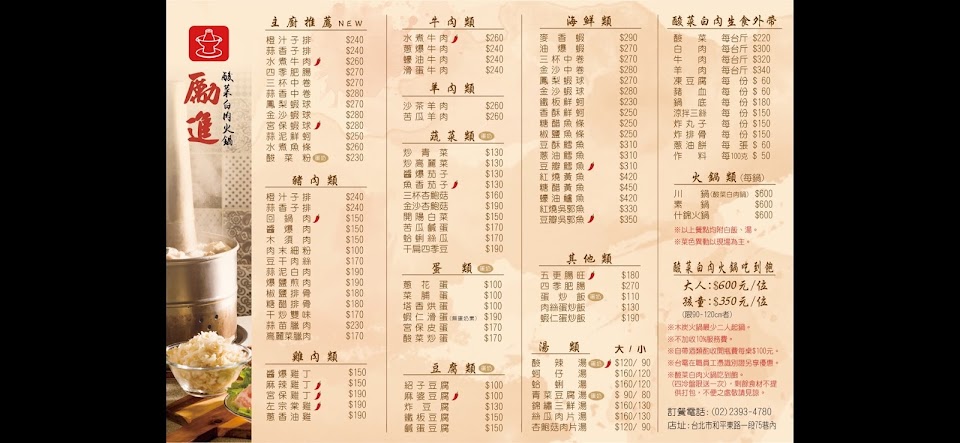 勵進
酸菜白肉火鍋
主廚推薦 NEW
橙汁子排 $240
蒜香子排 $240
水煮牛肉 $260
四季肥腸 $270
三杯中卷 $270
蒜香中卷 $280
鳳梨蝦球 $280
金沙蝦球 $280
宮保蝦球 $280
蒜泥鮮蚵 $250
水煮魚條 $260
酸菜粉 $230
豬肉類
橙汁子排 $240
蒜香子排 $240
回鍋肉 $150
醬爆肉 $150
木須肉 $150
肉末細粉 $100
豆干肉絲 $170
蒜泥白肉 $190
爆鹽煎肉 $190
椒鹽排骨 $180
糖醋排骨 $180
干炒雙味 $170
蒜苗臘肉 $230
高麗菜臘肉 $190
雞肉類
醬爆雞丁 $150
麻辣雞丁 $150
宮保雞丁 $190
左宗棠雞 $190
蔥香油雞 $190
牛肉類
水煮牛肉 $260
蔥爆牛肉 $240
蠔油牛肉 $240
滑蛋牛肉 $240
羊肉類
沙茶羊肉 $260
苦瓜羊肉 $260
蔬菜類
炒青菜 $130
炒高麗菜 $130
醬爆茄子 $130
魚香茄子 $130
三杯杏鮑菇 $160
金沙杏鮑菇 $190
開陽白菜 $150
苦瓜鹹蛋 $170
蛤蜊絲瓜 $170
干扁四季豆 $190
蛋類
蔥花蛋 $100
菜脯蛋 $100
塔香烘蛋 $100
蝦仁滑蛋 $190
宮保皮蛋 $170
酸菜炒蛋 $170
豆腐類
紹子豆腐 $100
麻婆豆腐 $100
炸豆腐 $130
鐵板豆腐 $150
鹹蛋豆腐 $190
海鮮類
麥香蝦 $290
油爆蝦 $270
三杯中卷 $270
金沙中卷 $280
鳳梨蝦球 $280
宮保蝦球 $280
鐵板鮮蚵 $240
香酥鮮蚵 $250
糖醋魚條 $250
椒鹽魚條 $250
豆酥鱈魚 $310
蔥油鱈魚 $310
豆瓣鱈魚 $310
紅燒黃魚 $420
糖醋黃魚 $450
蠔油鱸魚 $450
紅燒吳郭魚 $330
豆瓣吳郭魚 $350
其他類
五更腸旺 $180
四季肥腸 $240
蛋炒飯 $110
肉絲蛋炒飯 $130
蝦仁蛋炒飯 $190
湯類 大/小
酸辣湯 $120/ 90
蚵仔湯 $160/120
蛤蜊湯 $160/120
青菜豆腐湯 $ 90/ 80
錦繡三鮮湯 $160/130
絲瓜肉片湯 $160/130
杏鮑菇肉片湯 $120/ 90
酸菜白肉生食外帶
酸菜 每台斤 $220
白肉 每台斤 $300
牛肉 每台斤 $340
羊肉 每台斤 $340
凍豆腐 每份 $ 60
豬血 每份 $ 60
鍋底 每份 $180
涼拌三絲 每份 $150
炸丸子 每份 $150
炸排骨 每份 $150
蔥油餅 每張 $ 60
作料 每100克 $ 50
火鍋類(每鍋)
川鍋(酸菜白肉鍋) $600
素鍋 $600
什錦火鍋 $600
※以上餐點均附白飯、湯。
※菜色異動以現場為主。
酸菜白肉火鍋吃到飽
大人:$600元/位
孩童:$350元/位
(限90-120cm者)
※木炭火鍋最少二人起鍋。
※不加收10%服務費。
※自帶酒類酌收開瓶費每桌$100元。
※台電在職員工憑識別證另享優惠。
※酸菜白肉火鍋吃到飽,
(四冷盤限送一次),剩餘食材不提
供打包,不便之處敬請見諒。
訂餐電話:(02)2393-4780
店址:台北市和平東路一段75巷內